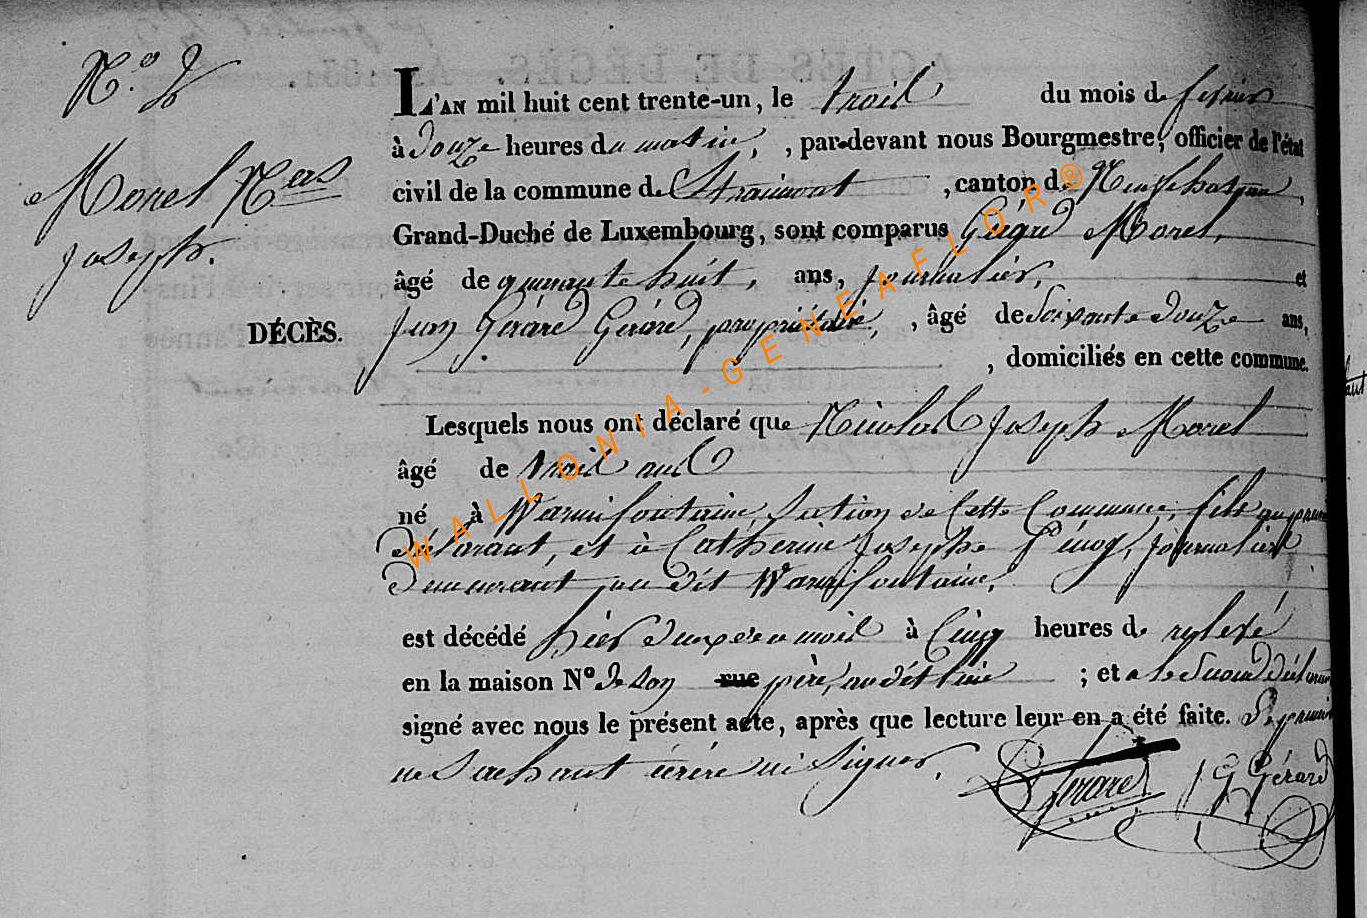 N.º 2
Morel N.ces
Joseph.
DÉCÈS.
L'AN mil huit cent trente-un, le trois du mois de fevrier
à douze heures du matin, , par-devant nous Bourgmestre, officier de l'état
civil de la commune de Straimont , canton de Neufchateau ,
Grand-Duché de Luxembourg, sont comparus Gérard Morel,
âgé de quarante huit, ans, journalier, et
Jean Gérard Gérard, propriétaire, , âgé de Soixante douze ans,
, domiciliés en cette commune.
Lesquels nous ont déclaré que Nicolas Joseph Morel
âgé de trois ans
né à Warmifontaine, Section de Cette Commune, fils au premier
déclarant, et à Catherine Josephe journalière
demeurant au dit Warmifontaine,
est décédé hier deux de ce mois à Cinq heures de relevé
en la maison Nº de Son rue père, au dit lieu ; et a le Second déclarant
signé avec nous le présent acte, après que lecture leur en a été faite. Le premier
ne Sachant écrire ni Signer,
Gerard J G Gérard
WALLONIA-GENEAFLOR®